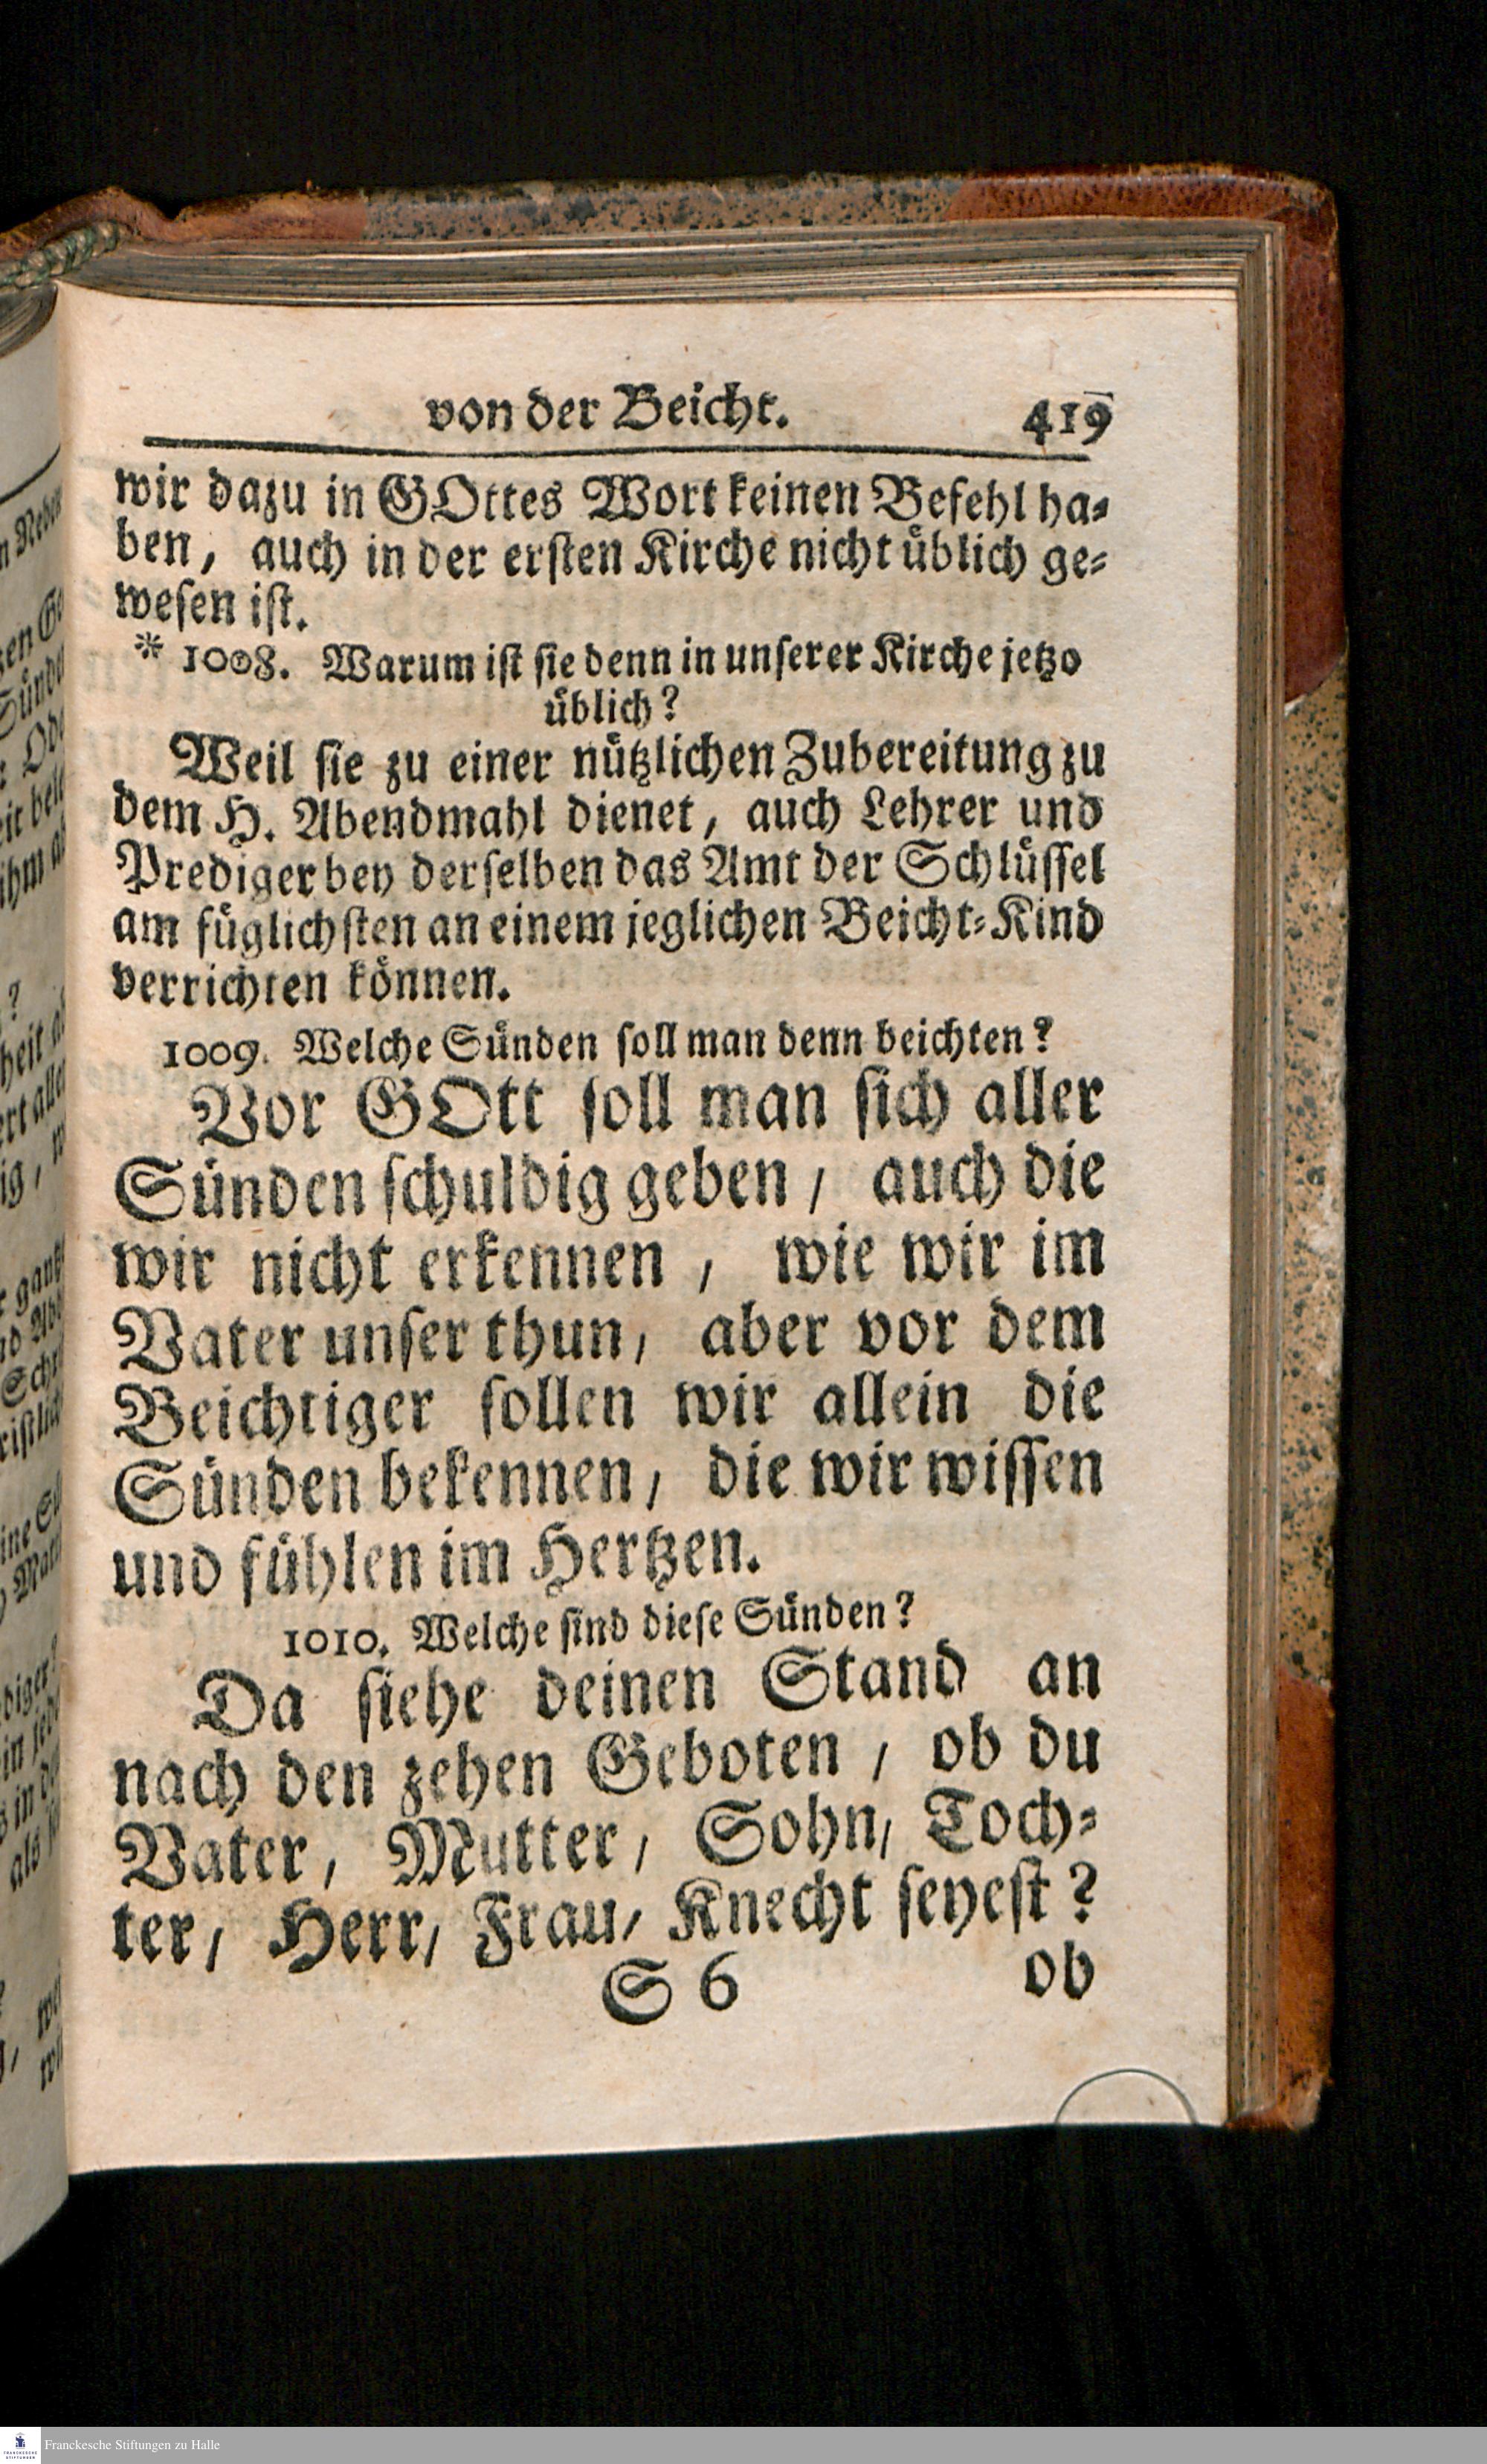 von der Beicht. 419
wir dazu in GOttes Wort keinen Befehl ha-
ben, auch in der ersten Kirche nicht üblich ge-
wesen ist.
* 1008. Warum ist sie denn in unserer Kirche jetzo
üblich?
Weil sie zu einer nützlichen Zubereitung zu
dem H. Abendmahl dienet, auch Lehrer und
Prediger bey derselben das Amt der Schlüssel
am füglichsten an einem jeglichen Beicht-Kind
verrichten können.
1009. Welche Sünden soll man denn beichten?
Vor GOtt soll man sich aller
Sünden schuldig geben / auch die
wir nicht erkennen , wie wir im
Vater unser thun, aber vor dem
Beichtiger sollen wir allein die
Sünden bekennen, die wir wissen
und fühlen im Hertzen.
1010. Welche sind diese Sünden?
Da siehe deinen Stand an
nach den zehen Geboten / ob du
Vater, Mutter / Sohn, Toch-
ter / Herr / Frau / Knecht seyest?
S 6 ob
Franckesche Stiftungen zu Halle